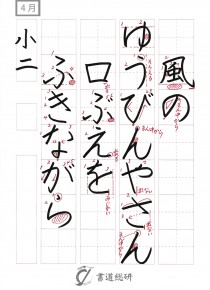 4月
風の
ゆうびんやさん
口ぶえを
ふきながら
小二
書道総研